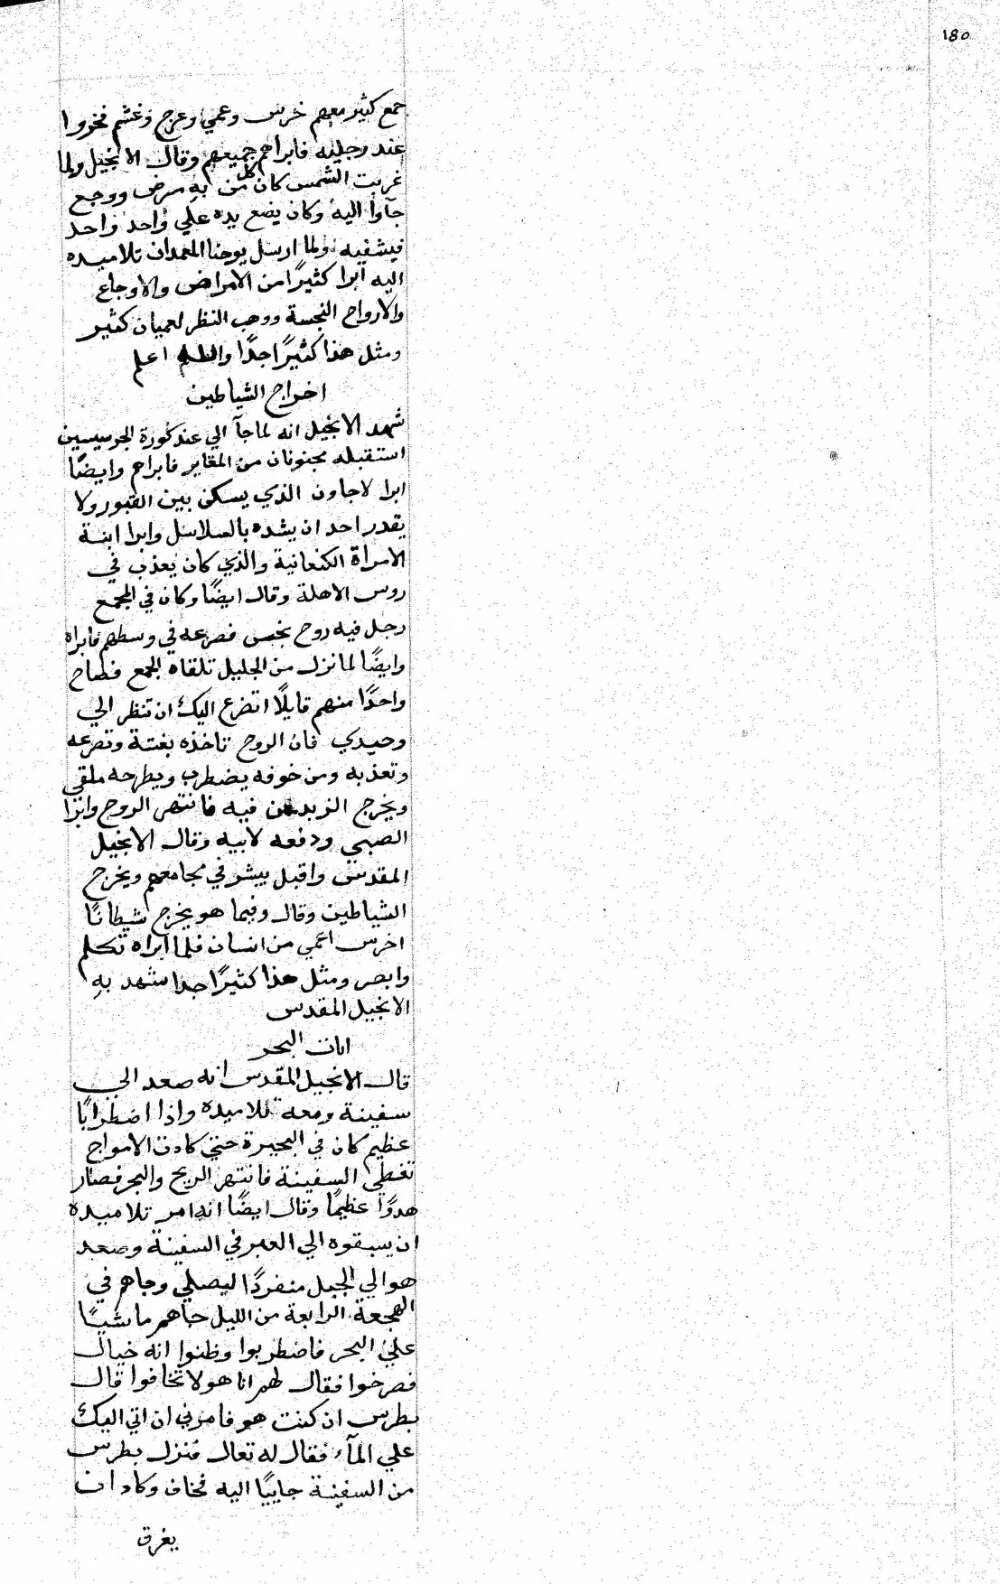 ١٨٥
جمع كثير معهم خرس وعمي وعرج وغشم فخروا
عند رجليه فابراهم جميعهم وقال الانجيل ولما
غربت الشمس كان كل من به مرض ووجع
جآوا اليه وكان يضع يده علي واحد واحد
فيشفيه ولما ارسل يوحنا المعمدان تلاميده
اليه ابرا كثيرًا من الامراض والاوجاع
والارواح النجسة ووهب النظر لعميان كثير
ومثل هذا كثيرًا جدًا والله اعلم
اخراج الشياطين
شهد الانجيل انه لما جآ الي عند كورة الجرسيسين
استقبله مجنونان من المقابر فابراهم وايضًا
ابرا لاجاون الذي يسكن بين القبور ولا
يقدر احد ان يشده بالسلاسل وابرا ابنة
الامراة الكنعانية والذي كان يعذب في
روس الاهلة وقال ايضًا وكان في المجمع
رجل فيه روح نجس فصرعه في وسطهم فابراه
وايضًا لما نزل من الجليل تلقاه الجمع فصاح
واحدًا منهم قايلًا اتضرع اليك ان تنظر الي
وحيدي فان الروح تاخذه بغتة وتصرعه
وتعذبه ومن خوفه يضطرب ويطرحه ملقي
ويخرج الزبد من فيه فانتهر الروح وابرا
الصبي ودفعه لابيه وقال الانجيل
المقدس واقبل يبشر في مجامعهم ويخرج
الشياطين وقال وفيما هو يخرج شيطانًا
اخرس اعمي من انسان فلما ابراه تكلم
وابصر ومثل هذا كثيرًا جدا شهد به
الانجيل المقدس
ايات البحر
قال الانجيل المقدس انه صعد الي
سفينة ومعه تلاميده واذا اضطرابًا
عظيم كان في البحيرة حتي كادت الامواج
تغطي السفينة فانتهر الريح والبحر فصار
هدوًا عظيمًا وقال ايضًا انه امر تلاميده
ان يسبقوه الي العبر في السفينة وصعد
هو الي الجبل منفردًا ليصلي وجاهم في
الهجعة الرابعة من الليل جاهم ماشيًا
علي البحر فاضطربوا وظنوا انه خيال
فصرخوا فقال لهم انا هو لا تخافوا قال
بطرس ان كنت هو فامرني ان اتي اليك
علي المآء فقال له تعال فنزل بطرس
من السفينة جاييًا اليه فخاف وكاد ان
يغرق